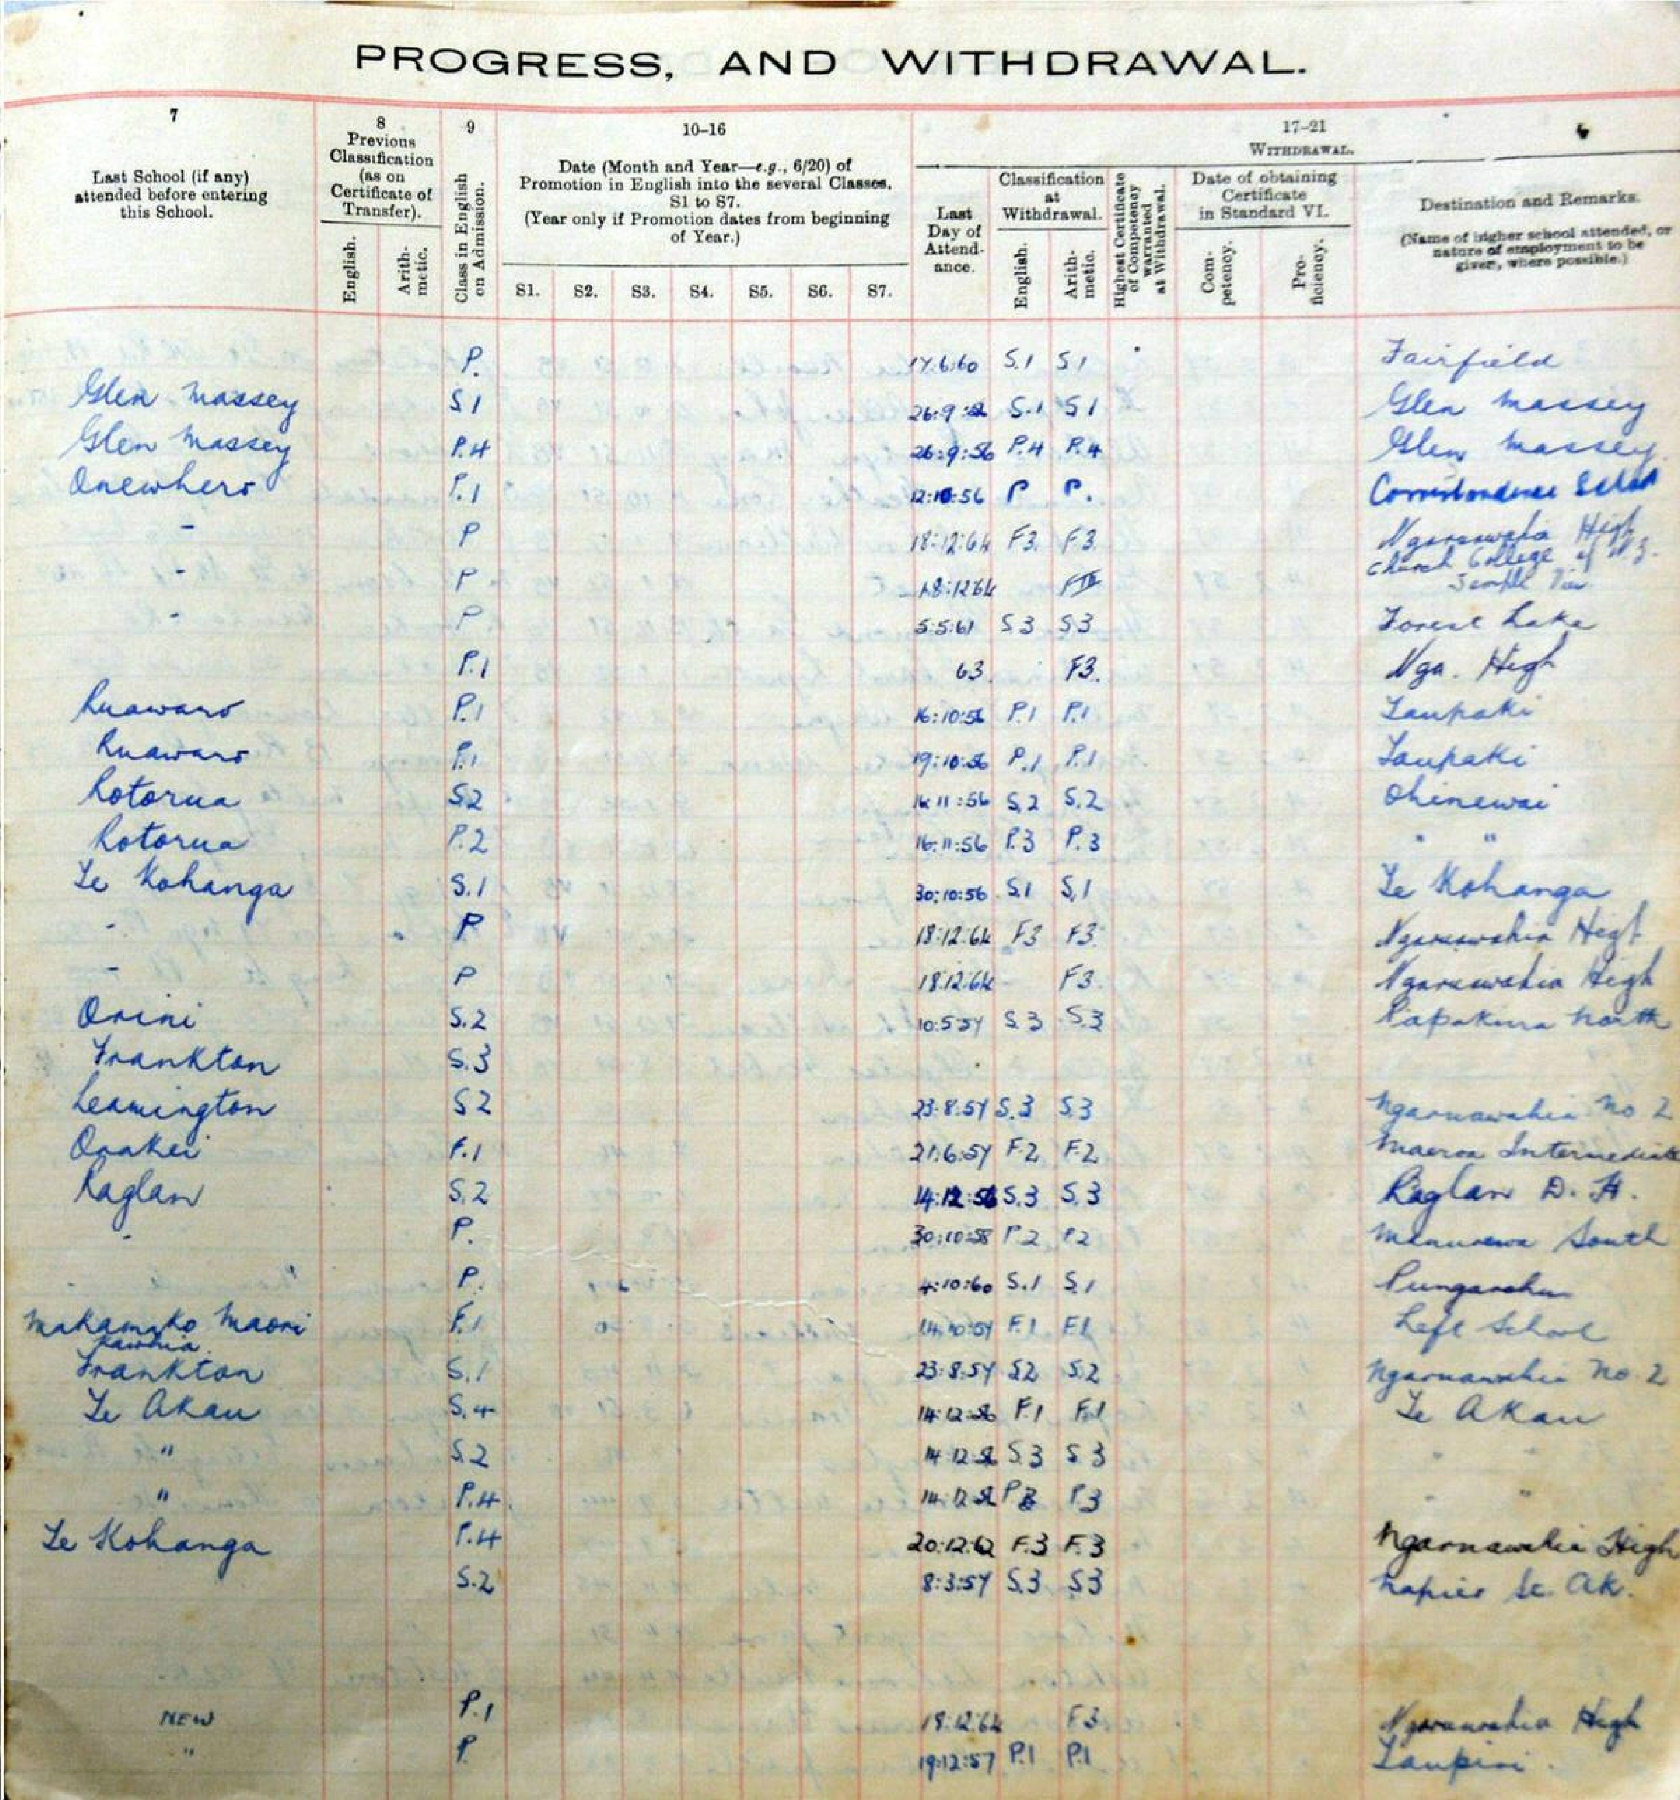 PROGRESS, AND WITHDRAWAL.
7
Last School (if any)
attended before entering
this School.
8
Previous
Classification
(as on
Certificate of
Transfer).
English.
Arith-
metic.
9
Class in English
on Admission.
10–16
Date (Month and Year—e.g., 6/20) of
Promotion in English into the several Classes,
S1 to S7.
(Year only if Promotion dates from beginning
of Year.)
S1. S2. S3. S4. S5. S6. S7.
17–21
WITHDRAWAL.
Last
Day of
Attend-
ance.
Classification
at
Withdrawal.
English.
Arith-
metic.
Highest Certificate
of Competency
warranted
at Withdrawal.
Date of obtaining
Certificate
in Standard VI.
Com-
petency.
Pro-
ficiency.
Destination and Remarks.
(Name of higher school attended, or
nature of employment to be
given, where possible.)
P. 17.6.60 S.1 S1 Fairfield
Glen Massey S1 26:9: S.1 S1 Glen Massey
Glen Massey P.4 26:9:56 P.4 P.4 Glen Massey.
Onewhero P.1 12:10:56 P P. Correspondence School
- P 18:12:64 F3. F3. Ngaruawahia High
- P 18:12:64 FIII Church College of N.Z.
Temple View
- P 5:5:61 S3 S3 Forest Lake
P.1 63 F3. Nga. High
Ruawaro P.1 16:10:56 P.1 P.1 Taupaki
Ruawaro P.1 19:10:56 P.1 P.1 Taupaki
Rotorua S2 16:11:56 S.2 S.2 Ohinewai
Rotorua P.2 16:11:56 P.3 P.3 " "
Te Kohanga S.1 30:10:56 S.1 S.1 Te Kohanga
- P 18:12:64 F3 F3. Ngaruawahia High
- P 18:12:64 F3. Ngaruawahia High
Orini S.2 10:5:57 S.3 S.3 Papakura North
Frankton S.3
Leamington S2 23:8:57 S.3 S3 Ngaruawahia No 2
Orakei F.1 21:6:57 F.2 F.2 Maeroa Intermediate
Raglan S.2 14:12:56 S.3 S.3 Raglan D. H.
- P. 30:10:58 P2 P2 Manurewa South
- P. 4:10:60 S.1 S.1 Pungarehu
Makamako Maori F.1 14:10:57 F.1 F.1 Left School
Kawhia
Frankton S.1 23:8:57 S2 S.2 Ngaruawahia No. 2
Te Akau S.4 14:12:56 F.1 F.1 Te Akau
" S.2 14:12:56 S3 S3 " "
" P.4. 14:12:56 P3 P3 " "
Te Kohanga P.4 20:12:62 F.3 F.3 Ngaruawahia High
S.2 8:3:57 S.3 S3 Napier St. Ak.
NEW P.1 18:12:64 F3 Ngaruawahia High
" P. 19:12:57 P.1 P.1 Taupiri.